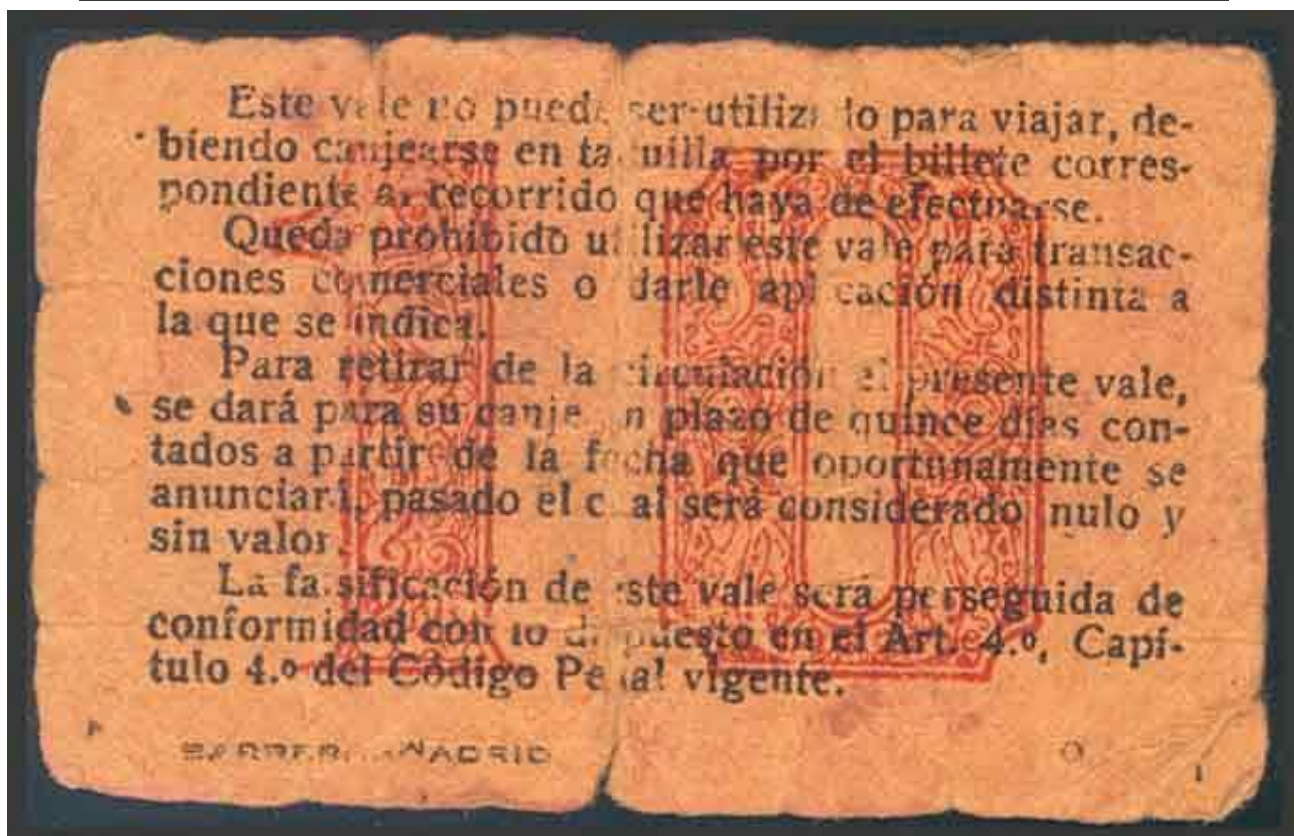 Este vale no puede ser utilizado para viajar, de-
biendo canjearse en taquilla por el billete corres-
pondiente al recorrido que haya de efectuarse.
Queda prohibido utilizar este vale para transac-
ciones comerciales o darle aplicación distinta a
la que se indica.
Para retirar de la circulación el presente vale,
se dará para su canje un plazo de quince días con-
tados a partir de la fecha que oportunamente se
anunciará, pasado el cual será considerado nulo y
sin valor.
La falsificación de este vale será perseguida de
conformidad con lo dispuesto en el Art. 4.º, Capí-
tulo 4.º del Código Penal vigente.
10
MADRID